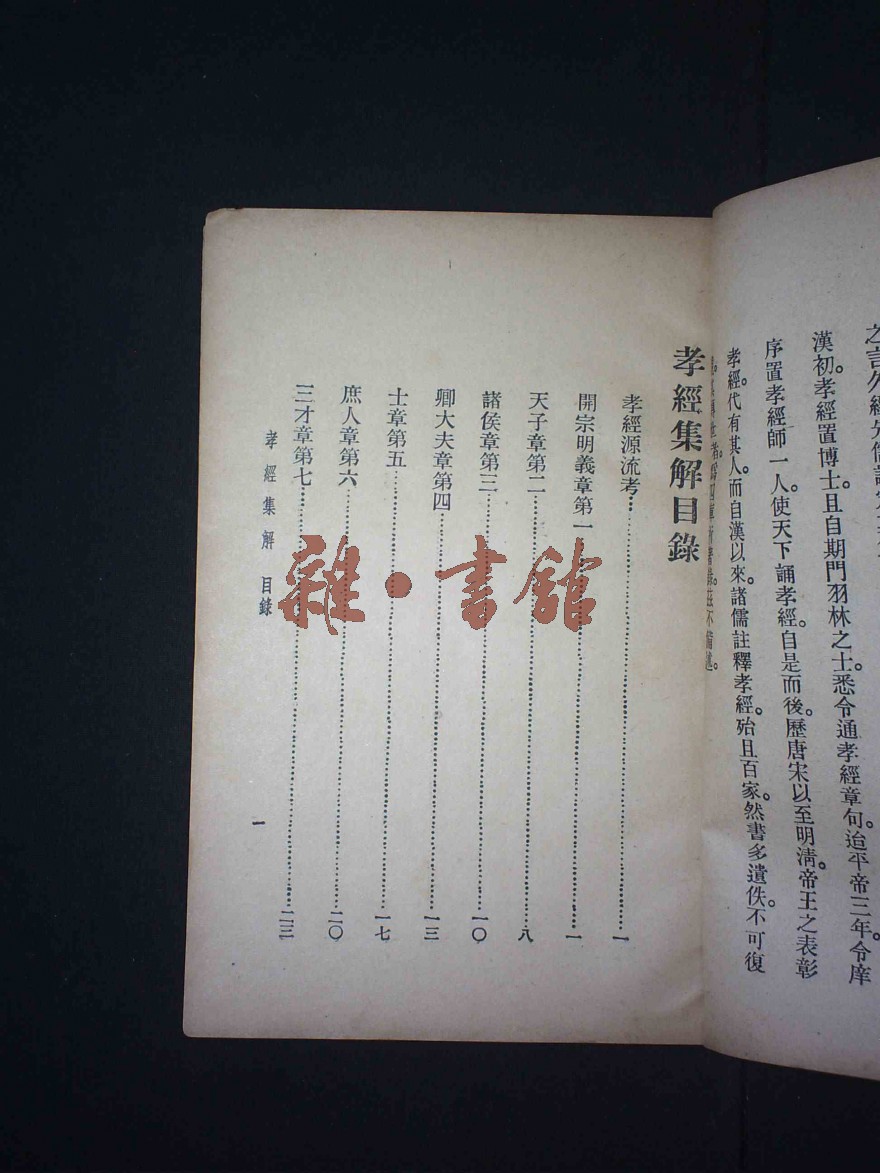 漢初。孝經置博士。且自期門羽林之士。悉令通孝經章句。迨平帝三年。令庠
序置孝經師一人。使天下誦孝經。自是而後。歷唐宋以至明清。帝王之表彰
孝經。代有其人。而自漢以來。諸儒註釋孝經。殆且百家。然書多遺佚。不可復
孝經集解目錄
孝經源流考…一
開宗明義章第一…一
天子章第二…八
諸侯章第三…一〇
卿大夫章第四…一三
士章第五…一七
庶人章第六…二〇
三才章第七…二三
孝經集解 目錄
一
雜·書館